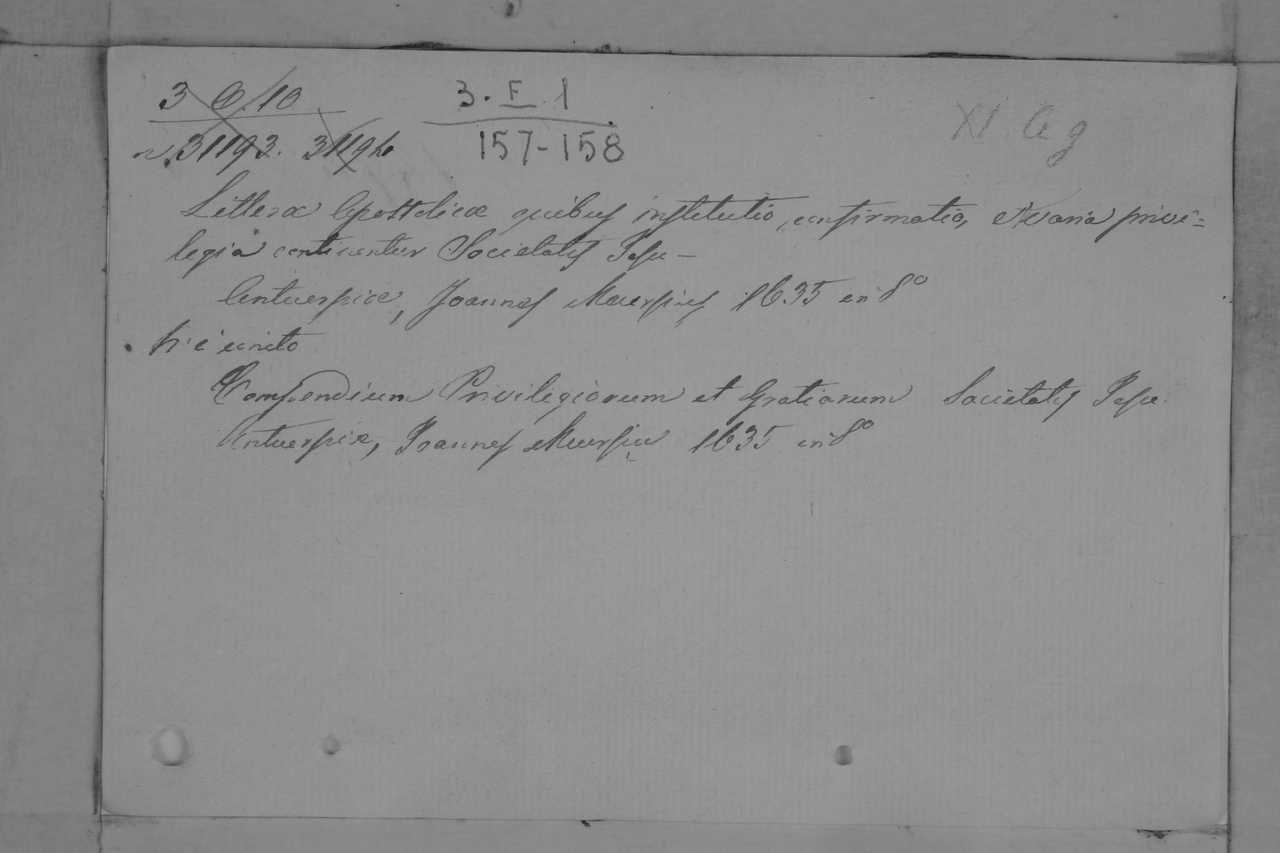 3 Q 10 3. F 1 XI a g
n. 31193. 31194 157-158
Litterae Apostolicae quibus institutio, confirmatio, et varia privi=
legia continentur Societatis Jesu –
Antuerpiae, Joannes Meursius 1635 in 8º
Vi è unito
Compendium Privilegiorum et Gratiarum Societatis Jesu
Antuerpiae, Joannes Meursius 1635 in 8º